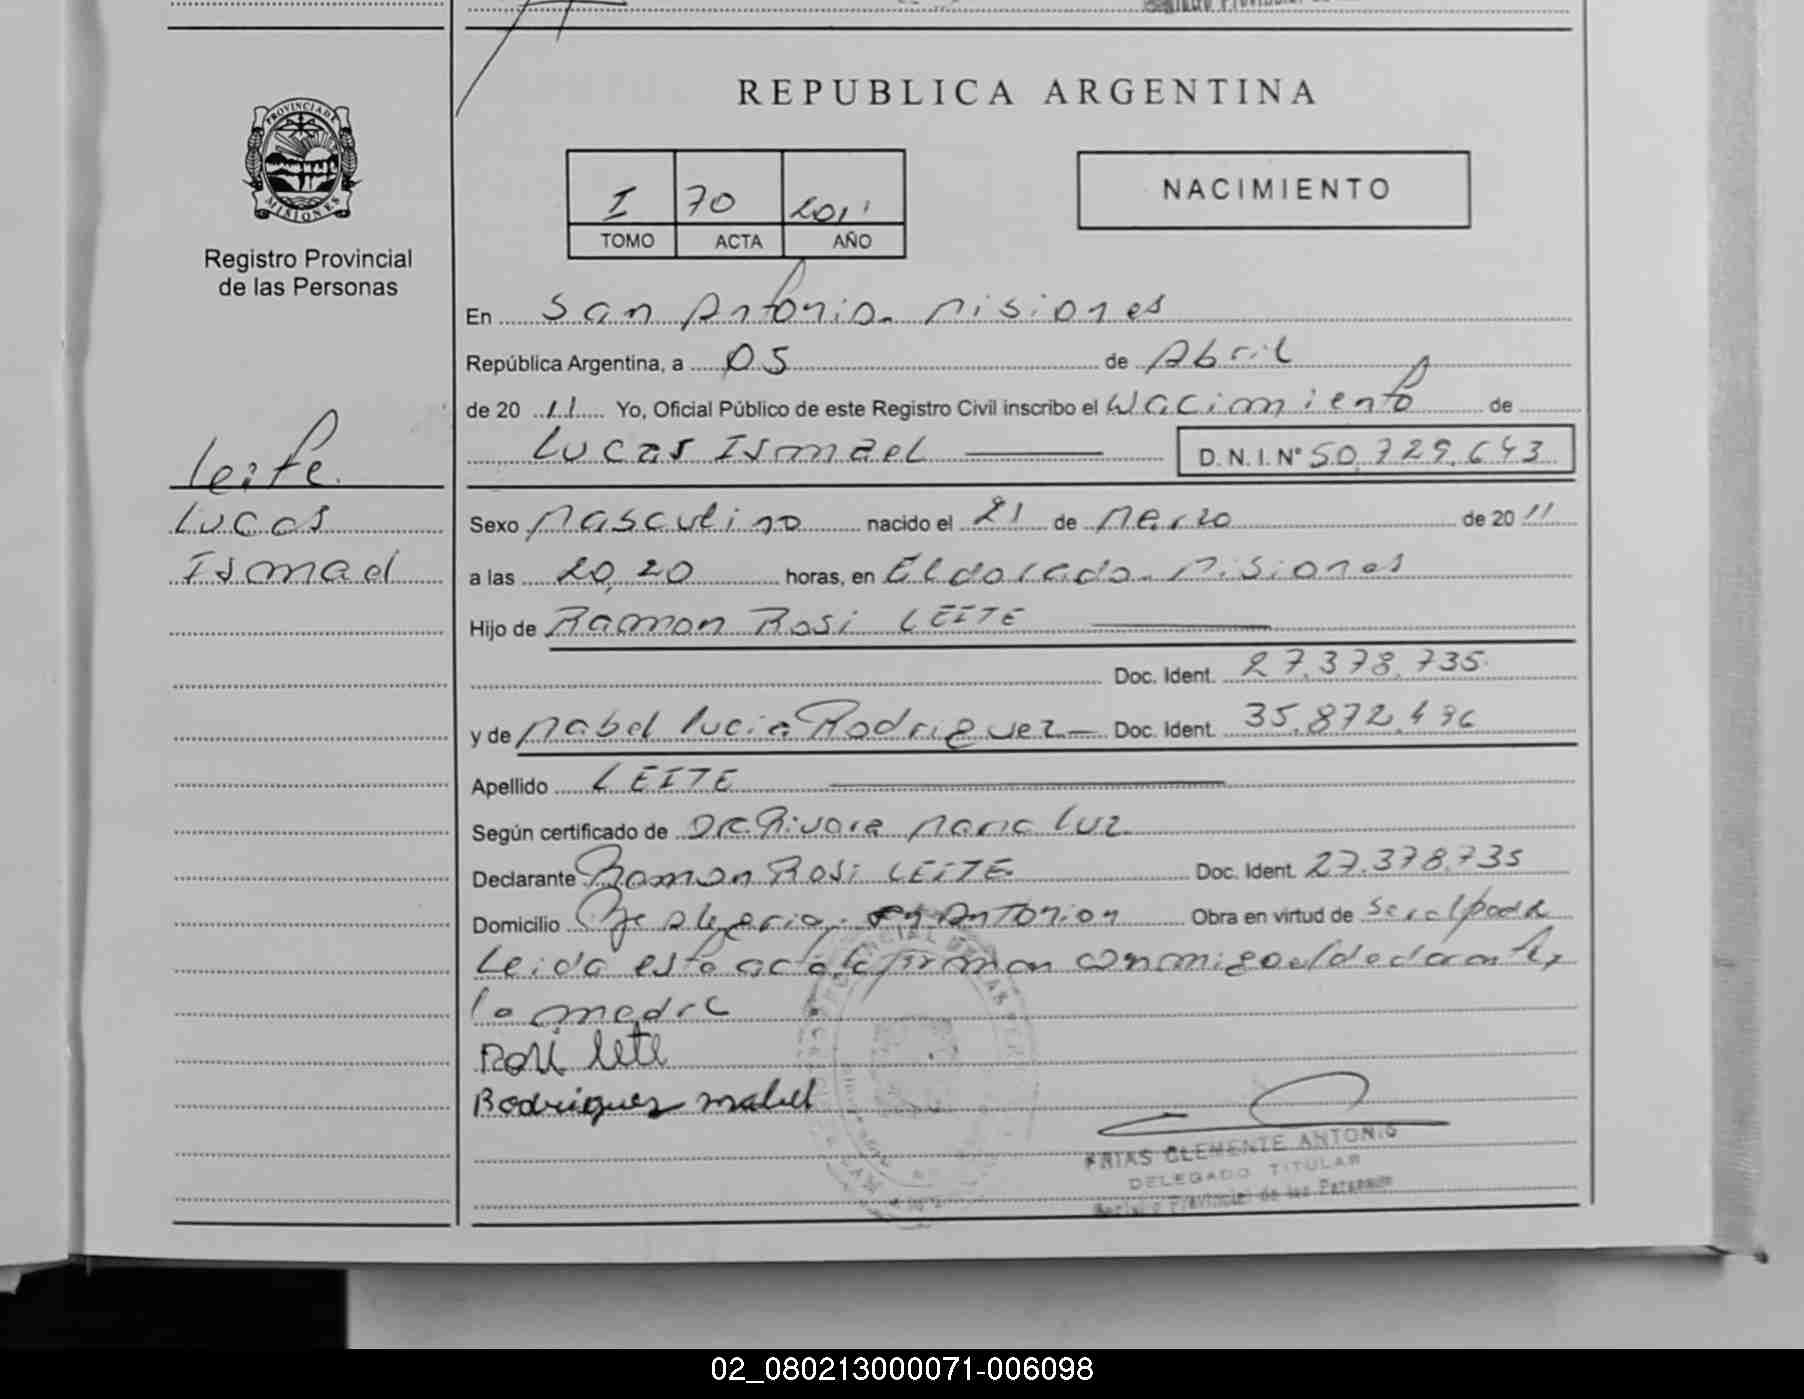 REPUBLICA ARGENTINA
PROVINCIA DE MISIONES
Registro Provincial
de las Personas
I 70 2011
TOMO ACTA AÑO
NACIMIENTO
En San Antonio Misiones
República Argentina, a 05 de Abril
de 2011 Yo, Oficial Público de este Registro Civil inscribo el Nacimiento de
Lucas Ismael D.N.I.Nº 50.729.643
Leite
Lucas
Ismael
Sexo Masculino nacido el 21 de Marzo de 2011
a las 20,20 horas, en Eldorado Misiones
Hijo de Ramon Rosi LEITE
Doc. Ident. 27.378.735
y de Mabel Lucia Rodriguez Doc. Ident. 35.872.496
Apellido LEITE
Según certificado de Maria Luz
Declarante Ramon Rosi LEITE Doc. Ident. 27.378.735
Domicilio Obra en virtud de
Leida esta acta la firman conmigo el declarante y
la madre
Rosi leite
Rodriguez mabel
FRIAS CLEMENTE ANTONIO
DELEGADO TITULAR
Registro Provincial de las Personas
02_080213000071-006098